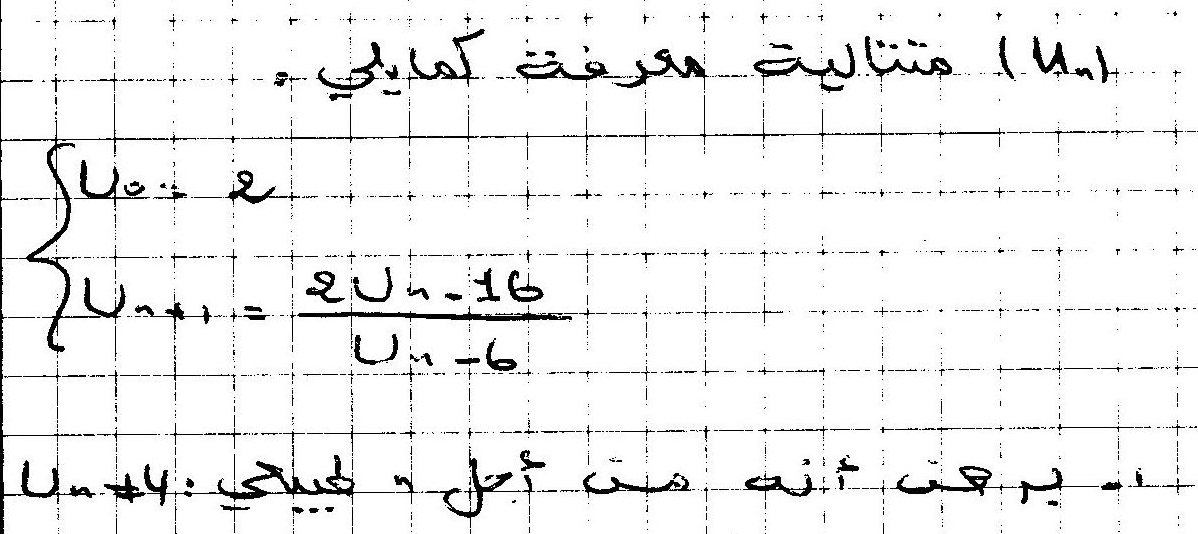 (Uₙ) متتالية معرفة كمايلي :
U₀ = 2
Uₙ₊₁ = (2Uₙ - 16) / (Uₙ - 6)
1- برهن أنه من أجل n طبيعي : Uₙ ≠ 4